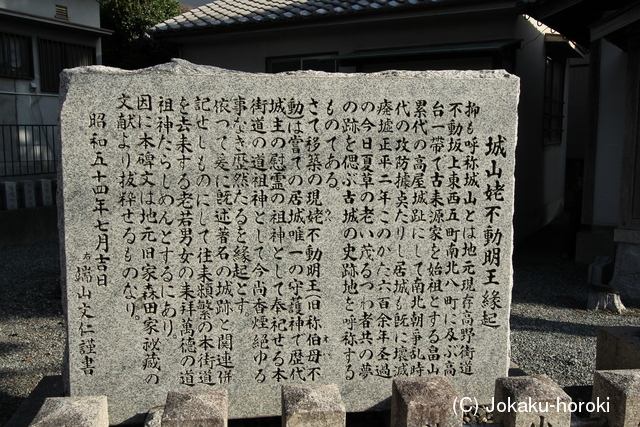 城山姥不動明王縁起
抑も呼称城山とは地元現存高野街道
不動坂上東西五町南北八町に及ぶ高
台一帯て古来源家を始祖とする畠山
累代の高屋城趾にして南北朝争乱時
代の攻防據点たりし居城も既に壊滅
廃墟正平二年このかた六百余年を過
の今日夏草の老い茂るつわ者共の夢
の跡を偲ぶ古城の史跡地を呼称する
ものである。
さて移築の現姥不動明王旧称伯母不
動は嘗ての居城唯一の守護神で歴代
城主の慰霊の祖神として奉祀せる本
街道の道祖神として今尚香煙絶ゆる
事なき歴然たるを縁起とす
依つて茲に既述著名の城跡と関連併
記せしものにして往来頻繁の本街道
を去来する老若男女の来拜萬徳の道
祖神たらしめんとするにあり。
因に本碑文は地元旧家森田家秘蔵の
文献より抜粋せるものなり。
昭和五十四年七月吉日
端山文仁謹書
(C) Jokaku-horoki